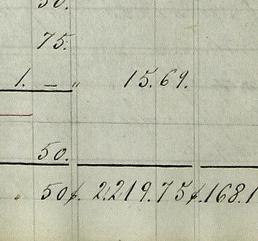 50.
75.
1. — „ 15.69.
50.
50¢. 2.219.75¢. 168.1